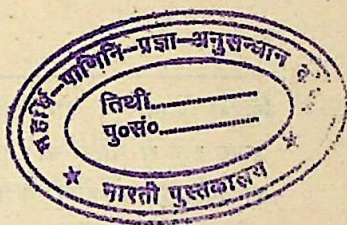 महर्षि-पाणिनि-प्रज्ञा-अनुसन्धान
तिथी..................
पु०सं०..................
भारती पुस्तकालय